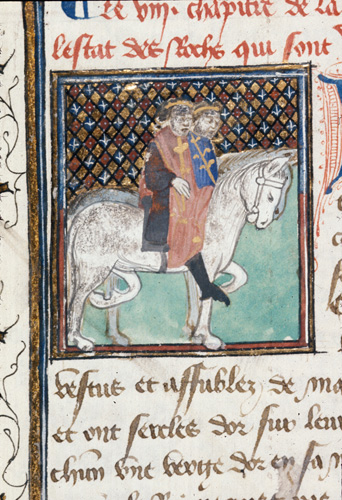 Le viij. chapitre de la
lestat des Rochs qui sont
vestus et affublez de ma
et ont sercles dor sur leur
chun une verge dor en sa m